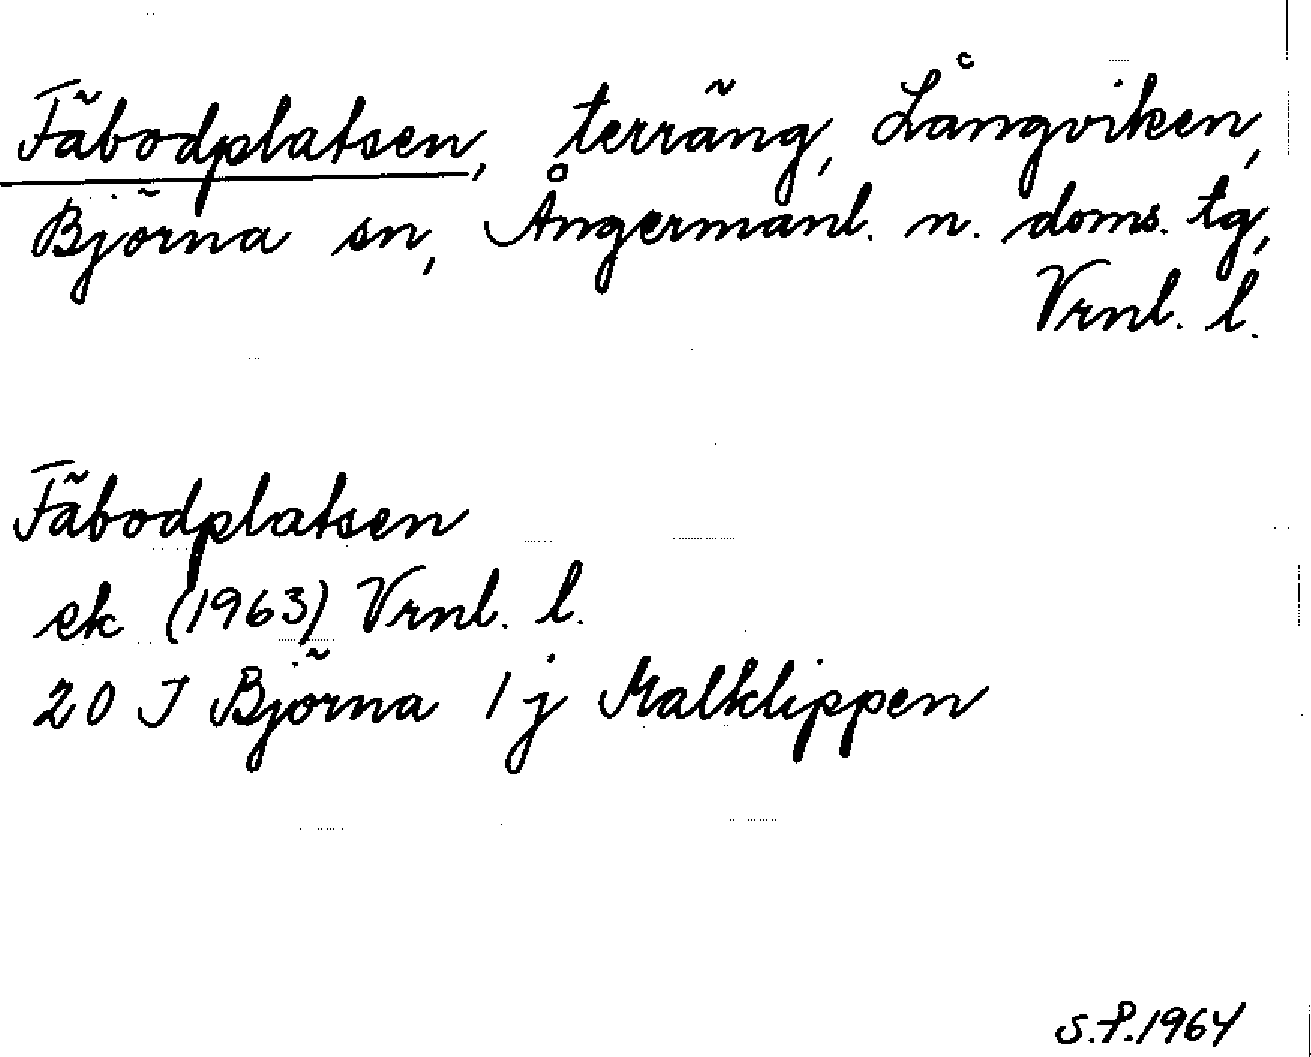 Fäbodplatsen, terräng, Långviken,
Björna sn, Ångermanl. n. doms. tg,
Vrnl. l.
Fäbodplatsen
ek (1963) Vrnl. l.
20 J Björna 1 j Malklippen
S.P. 1964